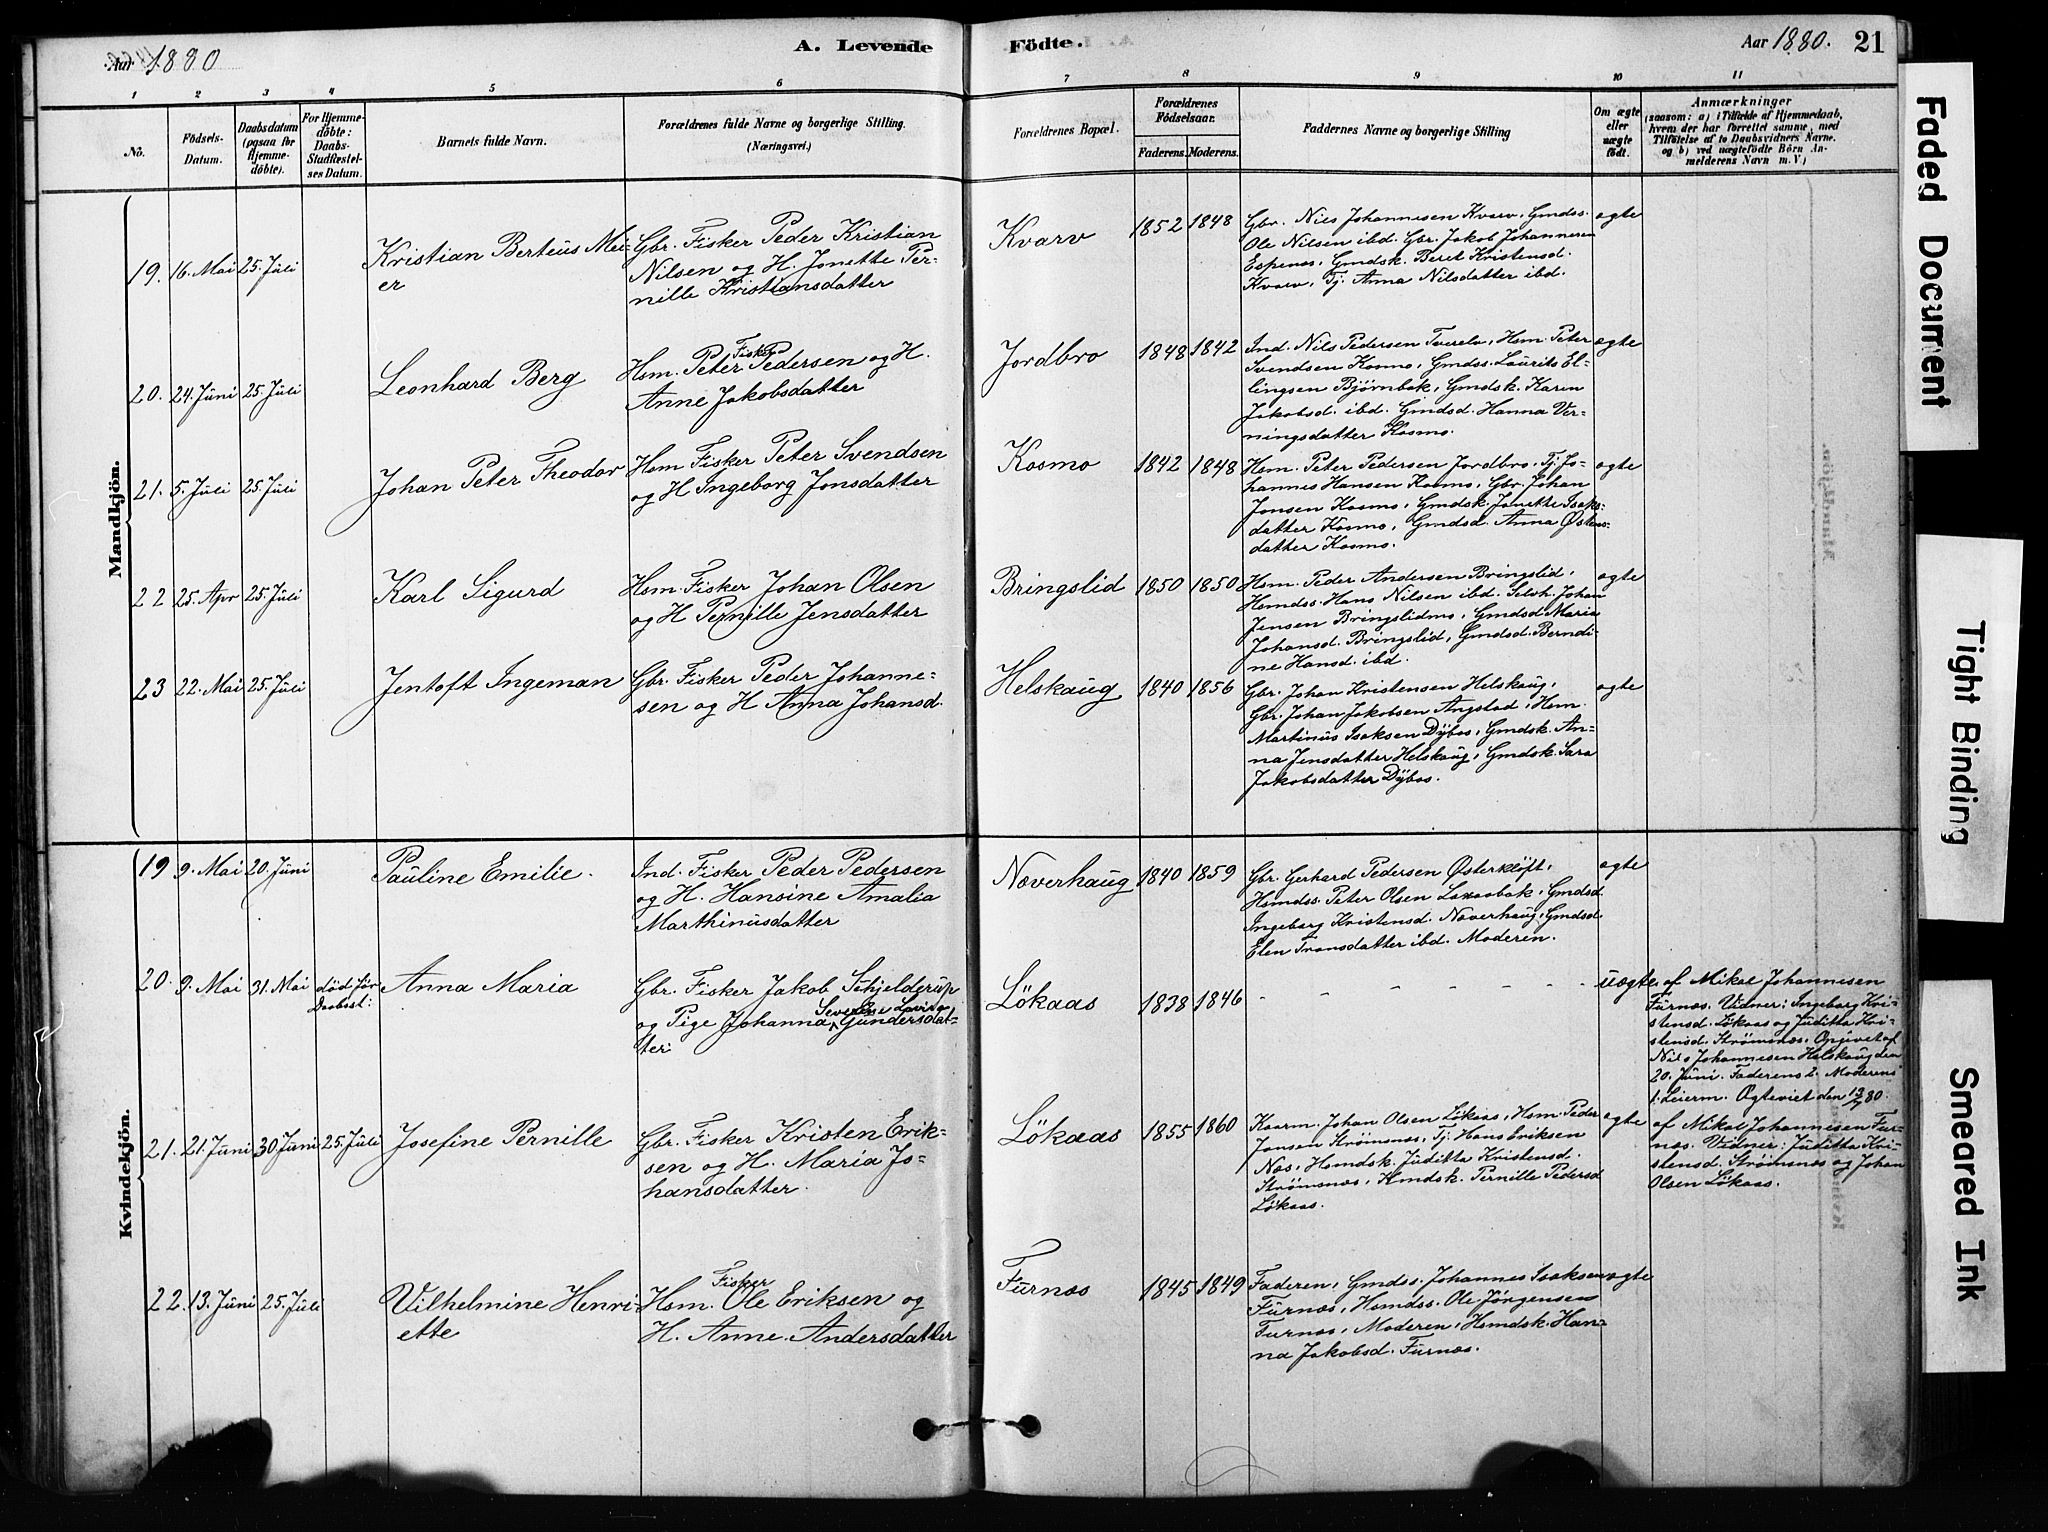 Aar 1880
A. Levende
Födte.
Aar 1880.
21
1
2
3
4
5
6
7
8
9
10
11
No.
Födsels-
Datum.
Daabsdatum
(ogsaa for
Hjemme-
döbte).
For Hjemme-
döbte:
Daabs-
Stadfæstel-
ses Datum.
Barnets fulde Navn.
Forældrenes fulde Navne og borgerlige Stilling.
(Næringsvei.)
Forældrenes Bopæl.
Forældrenes
Födselsaar.
Faderens.
Moderens.
Faddernes Navne og borgerlige Stilling
Om ægte
eller
uægte
födt.
Anmærkninger
(saasom: a) i Tilfælde af Hjemmedaab,
hvem der har forrettet samme, med
Tilföielse af to Daabsvidners Navne.
og b) ved uægtefödte Börn An-
melderens Navn m. V.)
Mandkjön.
19.
16. Mai
25. Juli
Kristian Berteus Mei-
er
Gbr. Fisker Peder Kristian
Nilsen og H. Jonette Per-
nille Kristiansdatter
Kvarv
1852
1848
Gbr. Nils Johannesen Kvarv, Gmdss.
Ole Nilsen ibd. Gbr. Jakob Johannesen
Espenes, Gmdsk. Beret Kristensd.
Kvarv, Tj. Anna Nilsdatter ibd.
ægte
20.
24. Juni
25. Juli
Leonhard Berg
Fisker
Hsm. Peter Pedersen og H.
Anne Jakobsdatter
Jordbro
1848
1842
Ind. Nils Pedersen Tverelv, Hsm. Peter
Svendsen Kosmo, Gmdss. Laurits El-
lingsen Bjørnbak, Gmdsk. Karen
Jakobsd. ibd. Gmdsd. Hanna Ver-
ningsdatter Kosmo.
ægte
21.
5. Juli
25. Juli
Johan Peter Theodor
Hsm Fisker Peter Svendsen
og H Ingeborg Jonsdatter
Kosmo
1842
1848
Hsm. Peter Pedersen Jordbro, Tj. Jo-
hannes Hansen Kosmo, Gbr. Johan
Jonsen Kosmo, Gmdsk. Jonette Isaks-
datter Kosmo, Gmdsd. Anna Østens-
datter Kosmo.
ægte
22
25. Apr
25. Juli
Karl Sigurd
Hsm. Fisker Johan Olsen
og H Pernille Jensdatter
Bringslid
1850
1850
Hsm. Peder Andersen Bringslid,
Hsmdss. Hans Nilsen ibd. Selvh. Johan
Jensen Bringslidmo, Gmdsd Maria
Johansd. Bringslid, Gmdsd. Berndi-
ne Hansd. ibd.
ægte
23
22. Mai
25. Juli
Jentoft Ingeman
Gbr. Fisker Peder Johanne-
sen og H Anna Johansd.
Helskaug
1840
1856
Gbr. Johan Kristensen Helskaug,
Gbr. Johan Jakobsen Angstad, Hsm.
Martinus Isaksen Dybos, Gmdsk. An-
na Jensdatter Helskaug, Gmdsk. Sara
Jakobsdatter Dybos.
ægte
Kvindekjön.
19
9. Mai
20. Juni
Pauline Emilie.
Ind. Fisker Peder Pedersen
og H. Hansine Amalia
Marthinusdatter
Næverhaug
1840
1859
Gbr. Gerhard Pedersen Østerkløft,
Hsmdss. Peter Olsen Laxaabak, Gmdsd
Ingeborg Kristensd. Næverhaug, Gmdsd
Elen Transdatter ibd. Moderen.
ægte
20.
9. Mai
31. Mai
død før
Daabsst:
Anna Maria
Gbr. Fisker Jakob Schjelderup
Severine Lovise
og Pige Johanna Gundersdat-
ter
Lökaas
1838
1846
- - - - - - - -
uægte
af Mikal Johannesen
Furnæs. Vidner: Ingeborg Kri-
stensd. Løkaas og Juditta Kri-
stensd. Strømsnæs, Opgivet af
Nils Johannesen Helskaug den
20. Juni. Faderens 2. Moderens
1. Leierm. Ægteviet den 13/7 80.
21.
21. Juni
30. Juni
25. Juli
Josefine Pernille
Gbr. Fisker Kristen Erik-
sen og H. Maria Jo-
hansdatter.
Lökaas
1855
1860
Kaarm. Johan Olsen Løkaas, Hsm. Peder
Jonsen Strømsnæs, Tj. Hans Eriksen
Næs, Hsmdsk. Juditta Kristensd.
Strømsnæs, Hmdsk. Pernille Pedersd
Løkaas.
ægte
af Mikal Johannesen Fur-
næs. Vidner: Juditta Kri-
stensd. Strømsnæs og Johan
Olsen Løkaas.
22.
13. Juni
25. Juli
Vilhelmine Henri-
ette
Fisker
Hsm. Ole Eriksen og
H. Anne Andersdatter
Furnæs
1845
1849
Faderen, Gmdss. Johannes Isaksen
Furnæs, Hsmdss. Ole Jørgensen
Furnæs, Moderen, Hsmdsk. Han-
na Jakobsd. Furnæs.
ægte
Faded Document
Tight Binding
Smeared Ink